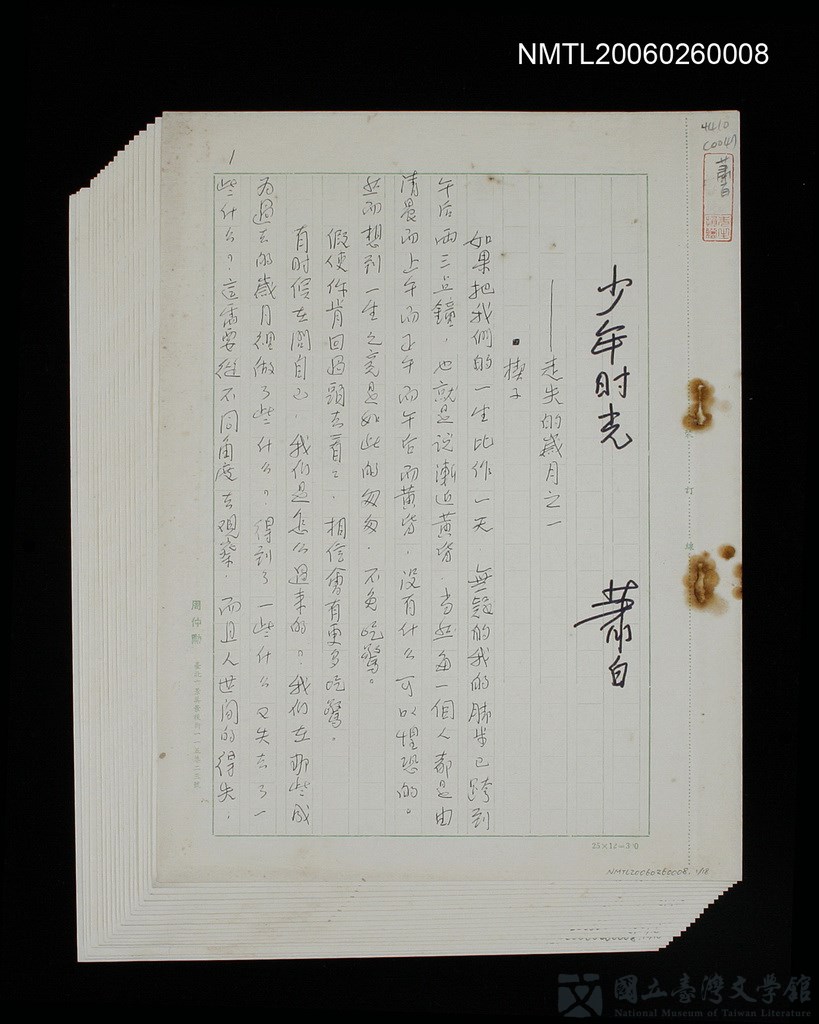 NMTL20060260008
4410
C0047
蕭白
少年时光
蕭白
——走失的歲月之一
▪楔子
如果把我們的一生比作一天，無疑的我的脚步已跨到
午后两三点鐘，也就是说漸近黃昏，当然每一個人都是由
清晨而上午而正午而午后而黃昏，没有什么可以惶恐的。
然而想到一生之竟是如此的匆匆，不免吃驚。
假使你肯回過頭去看看，相信會有更多吃驚。
有时候在問自己，我们是怎么過来的？我们在那些成
为過去的歲月裡做了些什么？得到了一些什么又失去了一
些什么？這需要從不同角度去观察，而且人世间的得失，
1
裝
訂
線
周仲勛
25×12=300
NMTL20060260008, 1/18
國立臺灣文學館
National Museum of Taiwan Literature